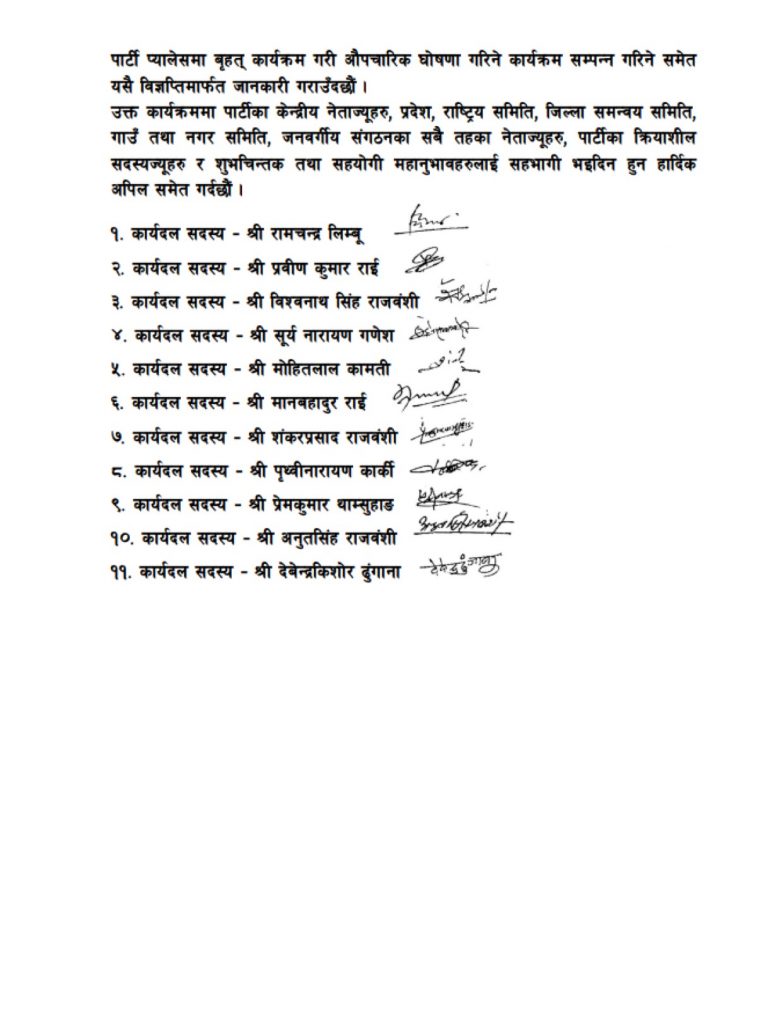 पार्टी प्यालेसमा बृहत् कार्यक्रम गरी औपचारिक घोषणा गरिने कार्यक्रम सम्पन्न गरिने समेत
यसै विज्ञप्तिमार्फत जानकारी गराउँदछौं ।
उक्त कार्यक्रममा पार्टीका केन्द्रीय नेताज्यूहरु, प्रदेश, राष्ट्रिय समिति, जिल्ला समन्वय समिति,
गाउँ तथा नगर समिति, जनवर्गीय संगठनका सबै तहका नेताज्यूहरु, पार्टीका क्रियाशील
सदस्यज्यूहरु र शुभचिन्तक तथा सहयोगी महानुभावहरुलाई सहभागी भइदिन हुन हार्दिक
अपिल समेत गर्दछौं ।
१. कार्यदल सदस्य - श्री रामचन्द्र लिम्बू
२. कार्यदल सदस्य - श्री प्रवीण कुमार राई
३. कार्यदल सदस्य - श्री विश्वनाथ सिंह राजवंशी
४. कार्यदल सदस्य - श्री सूर्य नारायण गणेश
५. कार्यदल सदस्य - श्री मोहितलाल कामती
६. कार्यदल सदस्य - श्री मानबहादुर राई
७. कार्यदल सदस्य - श्री शंकरप्रसाद राजवंशी
८. कार्यदल सदस्य - श्री पृथ्वीनारायण कार्की
९. कार्यदल सदस्य - श्री प्रेमकुमार थाम्सुहाङ
१०. कार्यदल सदस्य - श्री अनुतसिंह राजवंशी
११. कार्यदल सदस्य - श्री देबेन्द्रकिशोर ढुंगाना